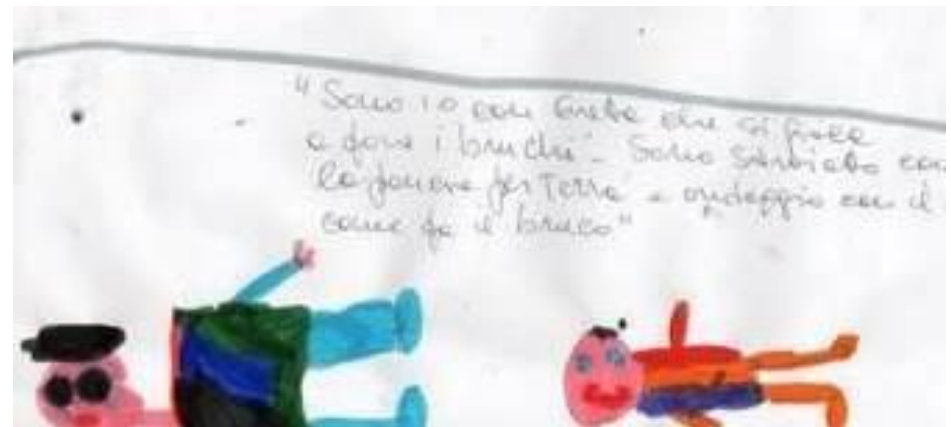 "Sono io con Greta che si gioca
a fare i bruchi". Sono sdraiato con
la pancia per terra e ondeggio con il
come fa il bruco"